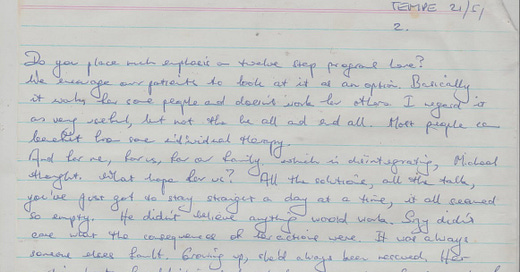 TEMPE 21/5/
2.
Do you place much emphasis on twelve step programs here?
We encourage our patients to look at it as an option. Basically
it works for some people and doesn't work for others. I regard it
as very useful, but not the be all and end all. Most people can
benefit from some individual therapy.
And for me, for us, for our family, which is disintegrating, Michael
thought. What hope for us? All the solutions, all the talk,
you've just got to stay straight a day at a time, it all seemed
so empty. He didn't believe anything would work. didn't
care what the consequences of her actions were. It was always
someone elses fault. Growing up, she'd always been rescued. Her